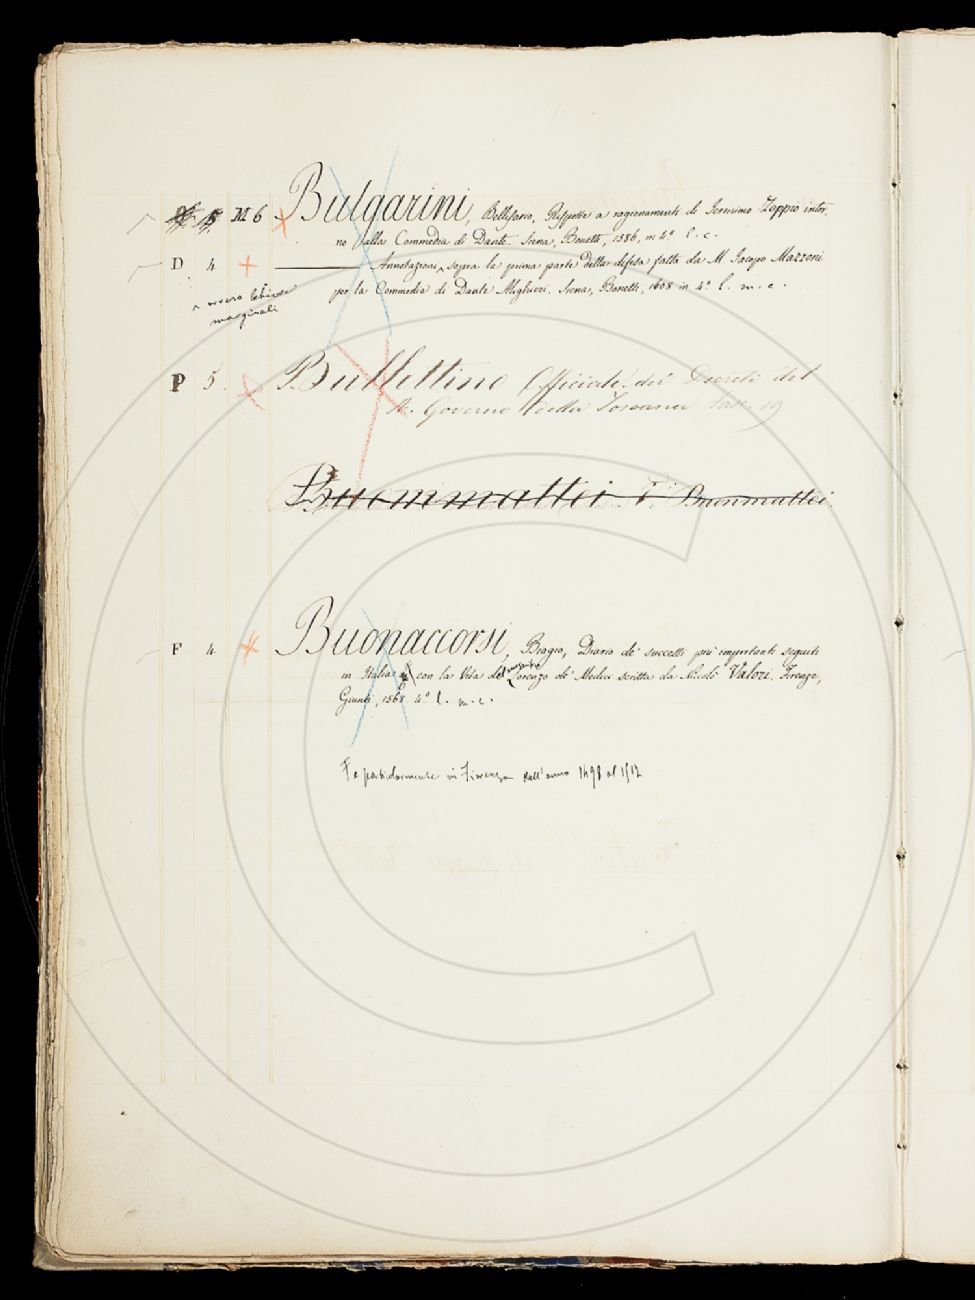 M 6 Bulgarini, Bellisario, Risposte a ragionamenti di Ieronimo Zoppio intor
no alla Commedia di Dante. Siena, Bonetti, 1586, in 4° l. c.
D 4 Annotazioni ‸ sopra la prima parte della difesa fatta da M Jacopo Mazzoni
per la Commedia di Dante Alighieri. Siena, Bonetti, 1608 in 4° l. m. c.
‸ ovvero
marginali
P 5. Bullettino Officiale dei Decreti del
R. Governo della Toscana fasc. 19
Buommattei V. Buonmattei.
F 4 Buonaccorsi, Biagio, Diario de' successi più importanti seguiti
in Italia con la Vita del Lorenzo de' Medici scritta da Nicolò Valori. Firenze,
Giunti, 1568 4° l. m. c.
e particolarmente in Fiorenza dall'anno 1498 al 1512